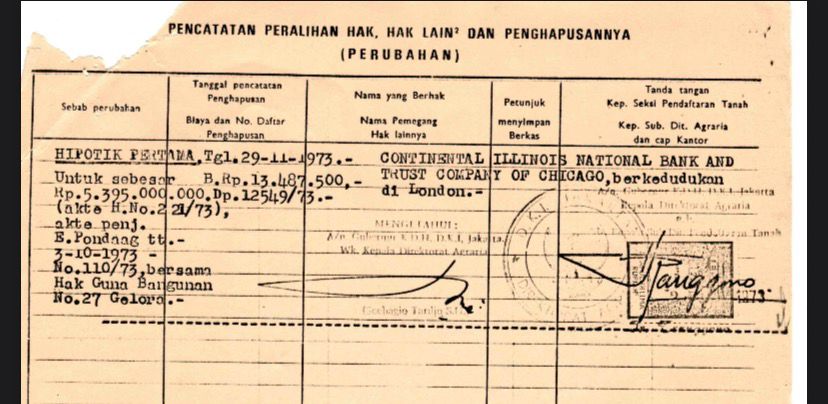 PENCATATAN PERALIHAN HAK, HAK LAIN² DAN PENGHAPUSANNYA
(PERUBAHAN)
Sebab perubahan
Tanggal pencatatan
Penghapusan
Biaya dan No. Daftar
Penghapusan
Nama yang Berhak
Nama Pemegang
Hak lainnya
Petunjuk
menyimpan
Berkas
Tanda tangan
Kep. Seksi Pendaftaran Tanah
Kep. Sub. Dit. Agraria
dan cap Kantor
HIPOTIK PERTAMA, Tgl.29-11-1973.-
Untuk sebesar B.Rp.13.487.500,-
Rp.5.395.000.000.Dp.12549/73.-
(akte H.No.221/73),
akte penj.
E.Pondaag tt.-
3-10-1973 -
No.110/73,bersama
Hak Guna Bangunan
No.27 Gelora.-
CONTINENTAL ILLINOIS NATIONAL BANK AND
TRUST COMPANY OF CHICAGO,berkedudukan
di London.-
MENGETAHUI :
A/n. Gubernur K.D.H. D.K.I. Jakarta
Wk. Kepala Direktorat Agraria
A/n. Gubernur K.D.H. D.K.I. Jakarta
Kepala Direktorat Agraria
1973